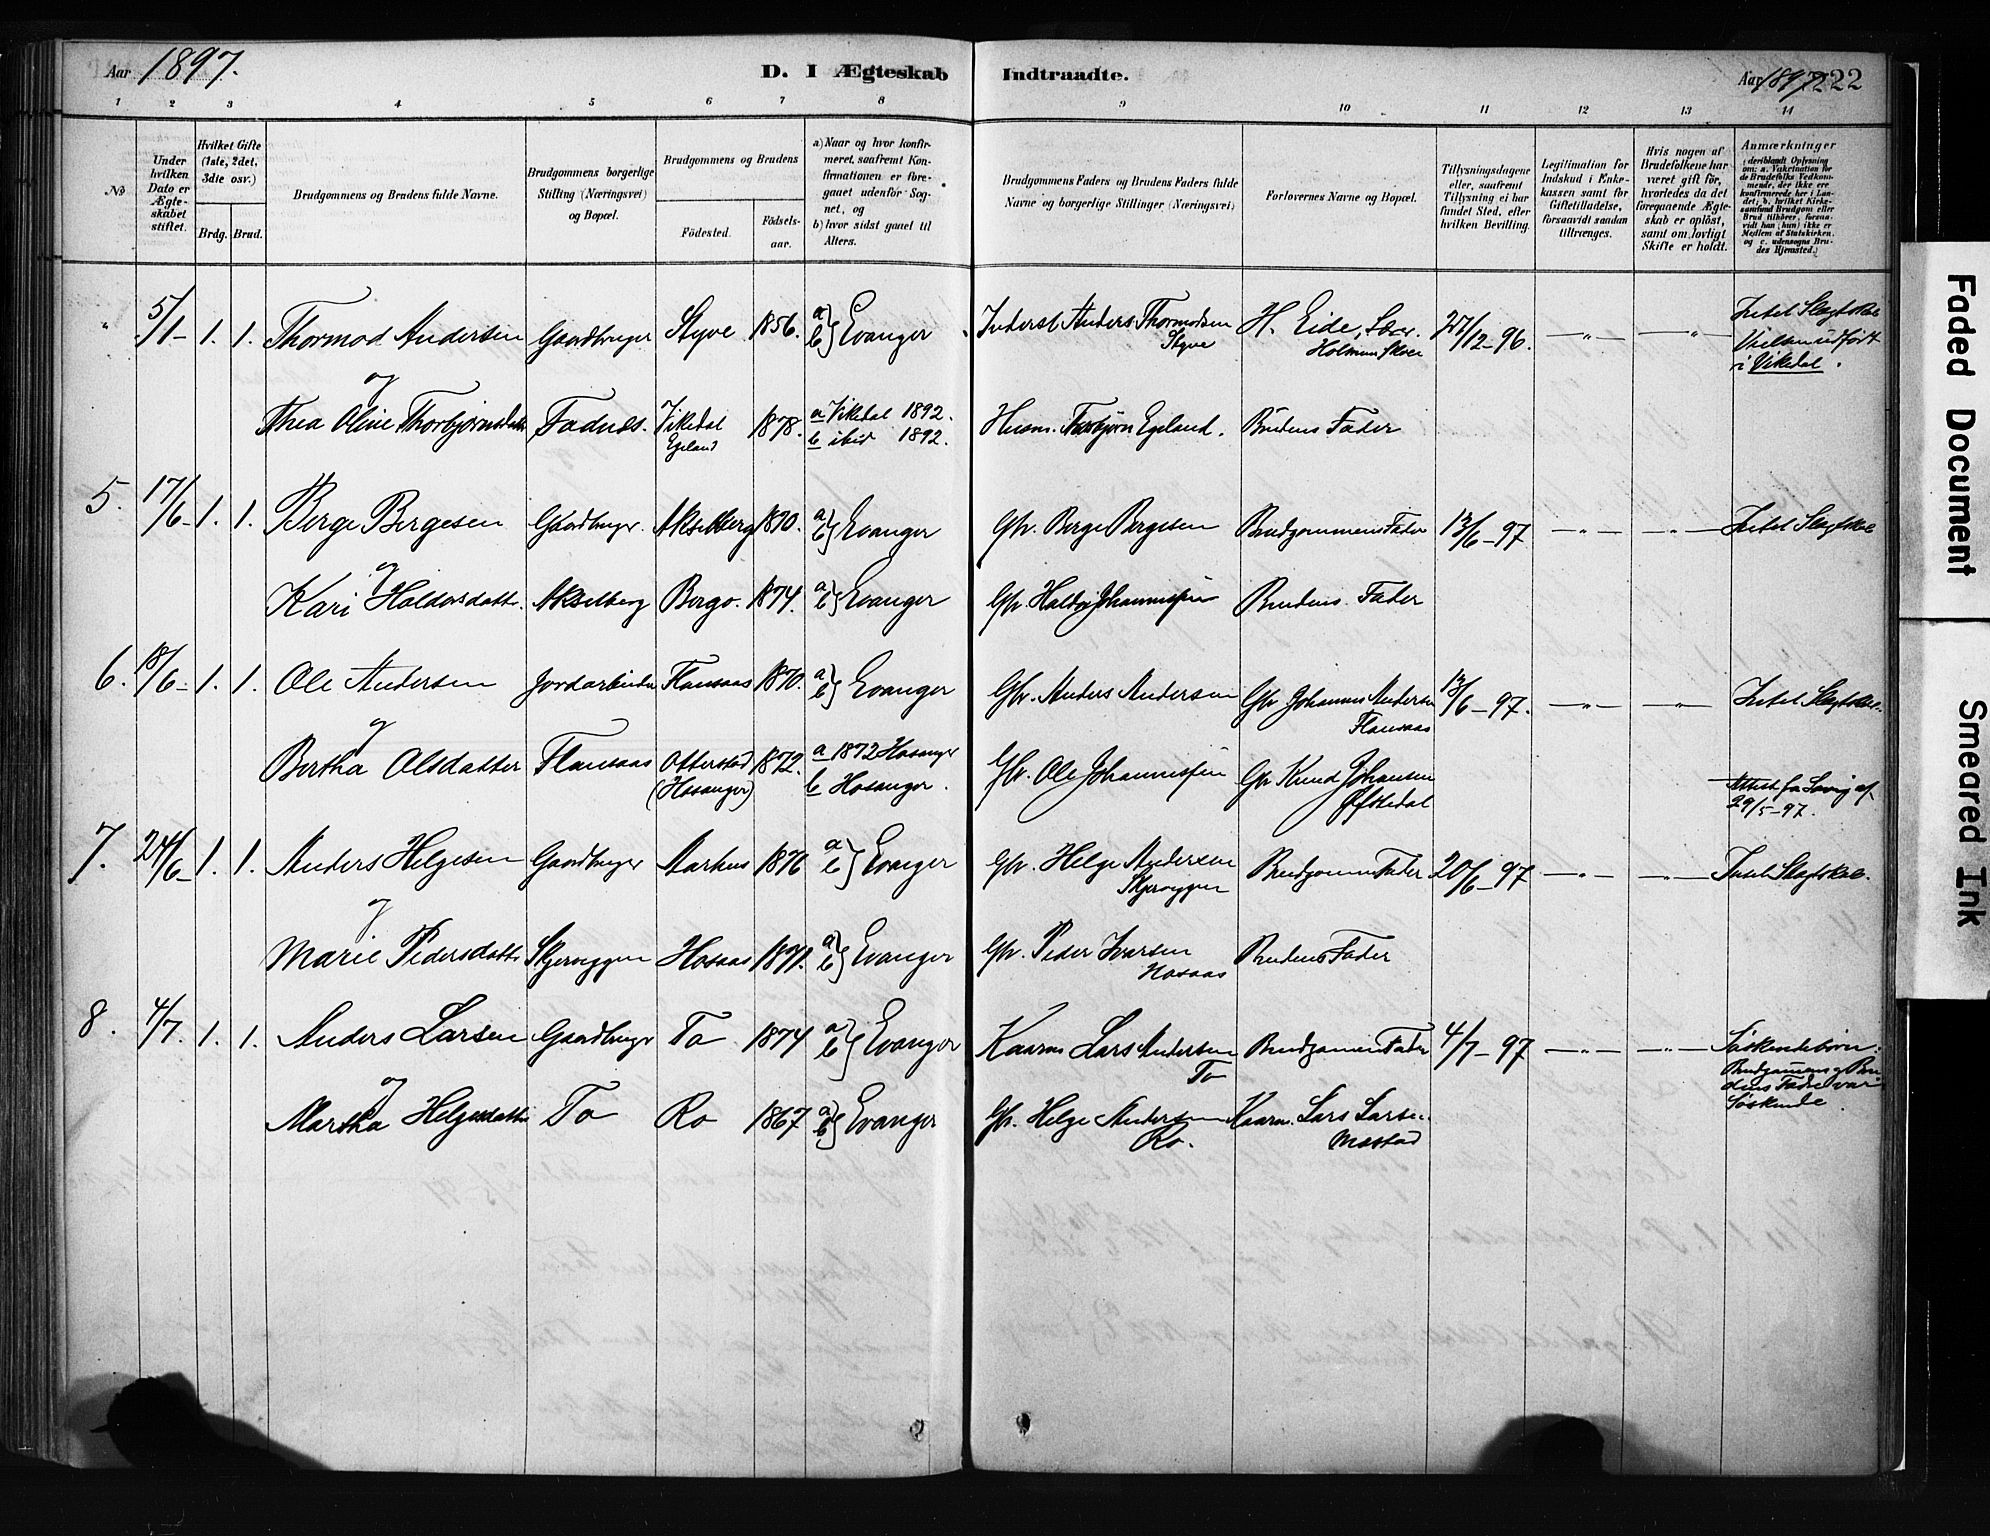 Aar 1897.
D. I Ægteskab Indtraadte.
Aar 1897 222
1 2 3 4 5 6 7 8 9 10 11 12 13 14
No
Under hvilken Dato er Ægteskabet stiftet.
Hvilket Gifte (1ste, 2det, 3die osv.)
Brdg. Brud.
Brudgommens og Brudens fulde Navne.
Brudgommens borgerlige Stilling (Næringsvei) og Bopæl.
Brudgommens og Brudens
Fødested.
Fødselsaar.
a) Naar og hvor konfirmeret, saafremt Konfirmationen er foregaaet udenfor Sognet, og
b) hvor sidst gaaet til Alters.
Brudgommens Faders og Brudens Faders fulde Navne og borgerlige Stillinger (Næringsvei)
Forlovernes Navne og Bopæl.
Tillysningsdagene eller, saafremt Tillysning ei har fundet Sted, efter hvilken Bevilling.
Legitimation for Indskud i Enkekassen samt for Giftetilladelse, forsaavidt saadan tiltrænges.
Hvis nogen af Brudefolkene har været gift før, hvorledes da det foregaaende Ægteskab er opløst, samt om lovligt Skifte er holdt.
Anmærkninger
" 5/1 1. 1. Thormod Andersen Gaardbruger Styve 1856. a) b) Evanger Inderst Anders Thormodsen Styve H. Eide, Lærer 27/12-96. —"— —"— Intet Slægtskab
Vielsen udført
i Vikedal.
og
Thea Oline Thorbjørnsdatt. Fadnes. Vikedal Egeland 1878. a Vikedal 1892. b ibid 1892. Husm. Torbjørn Egeland. Brudens Fader
5. 17/6 1. 1. Berge Bergesen Gaardbruger Akselberg 1870. a) b) Evanger Gbr. Berge Bergesen Brudgommens Fader 13/6-97 —"— —"— Intet Slægtskab
og
Kari Haldorsdatter. Akselberg Berge. 1874. a) b) Evanger Gbr. Haldor Johannessen Brudens Fader
6. 18/6 1. 1. Ole Andersen Jordarbeider Flansaas 1870. a) b) Evanger Gbr. Anders Andersen Gbr Johannes Andersen Flansaas 13/6-97. —"— —"— Intet Slægtskab.
og
Bertha Olsdatter Flansaas Otterstad (Hosanger) 1872. a 1872 Hosanger b Hosanger. Gbr. Ole Johannessen Gbr Knud Johansen Attest fra
29/5-97.
7. 24/6 1. 1. Anders Helgesen Gaardbruger Aarhus 1876 a) b) Evanger Gbr. Helge Andersen Skjerveggen Brudgommens Fader 20/6-97 —"— —"— Intet Slægtskab.
og
Marie Pedersdatter Skjerveggen Hosaas 1871. a) b) Evanger Gbr. Peder Ivarsen Hosaas Brudens Fader
8. 4/7. 1. 1. Anders Larsen Gaardbruger To 1874 a) b) Evanger Kaarm. Lars Andersen To Brudgommens Fader 4/7-97 —"— —"— Søskendebørn:
Brudgommens og Brudens Fædre var
Søskende.
og
Martha Helgesdatter To Ro 1867 a) b) Evanger Gbr. Helge Andersen Ro. Kaarm. Lars Larsen Mostad
Faded Document
Smeared Ink